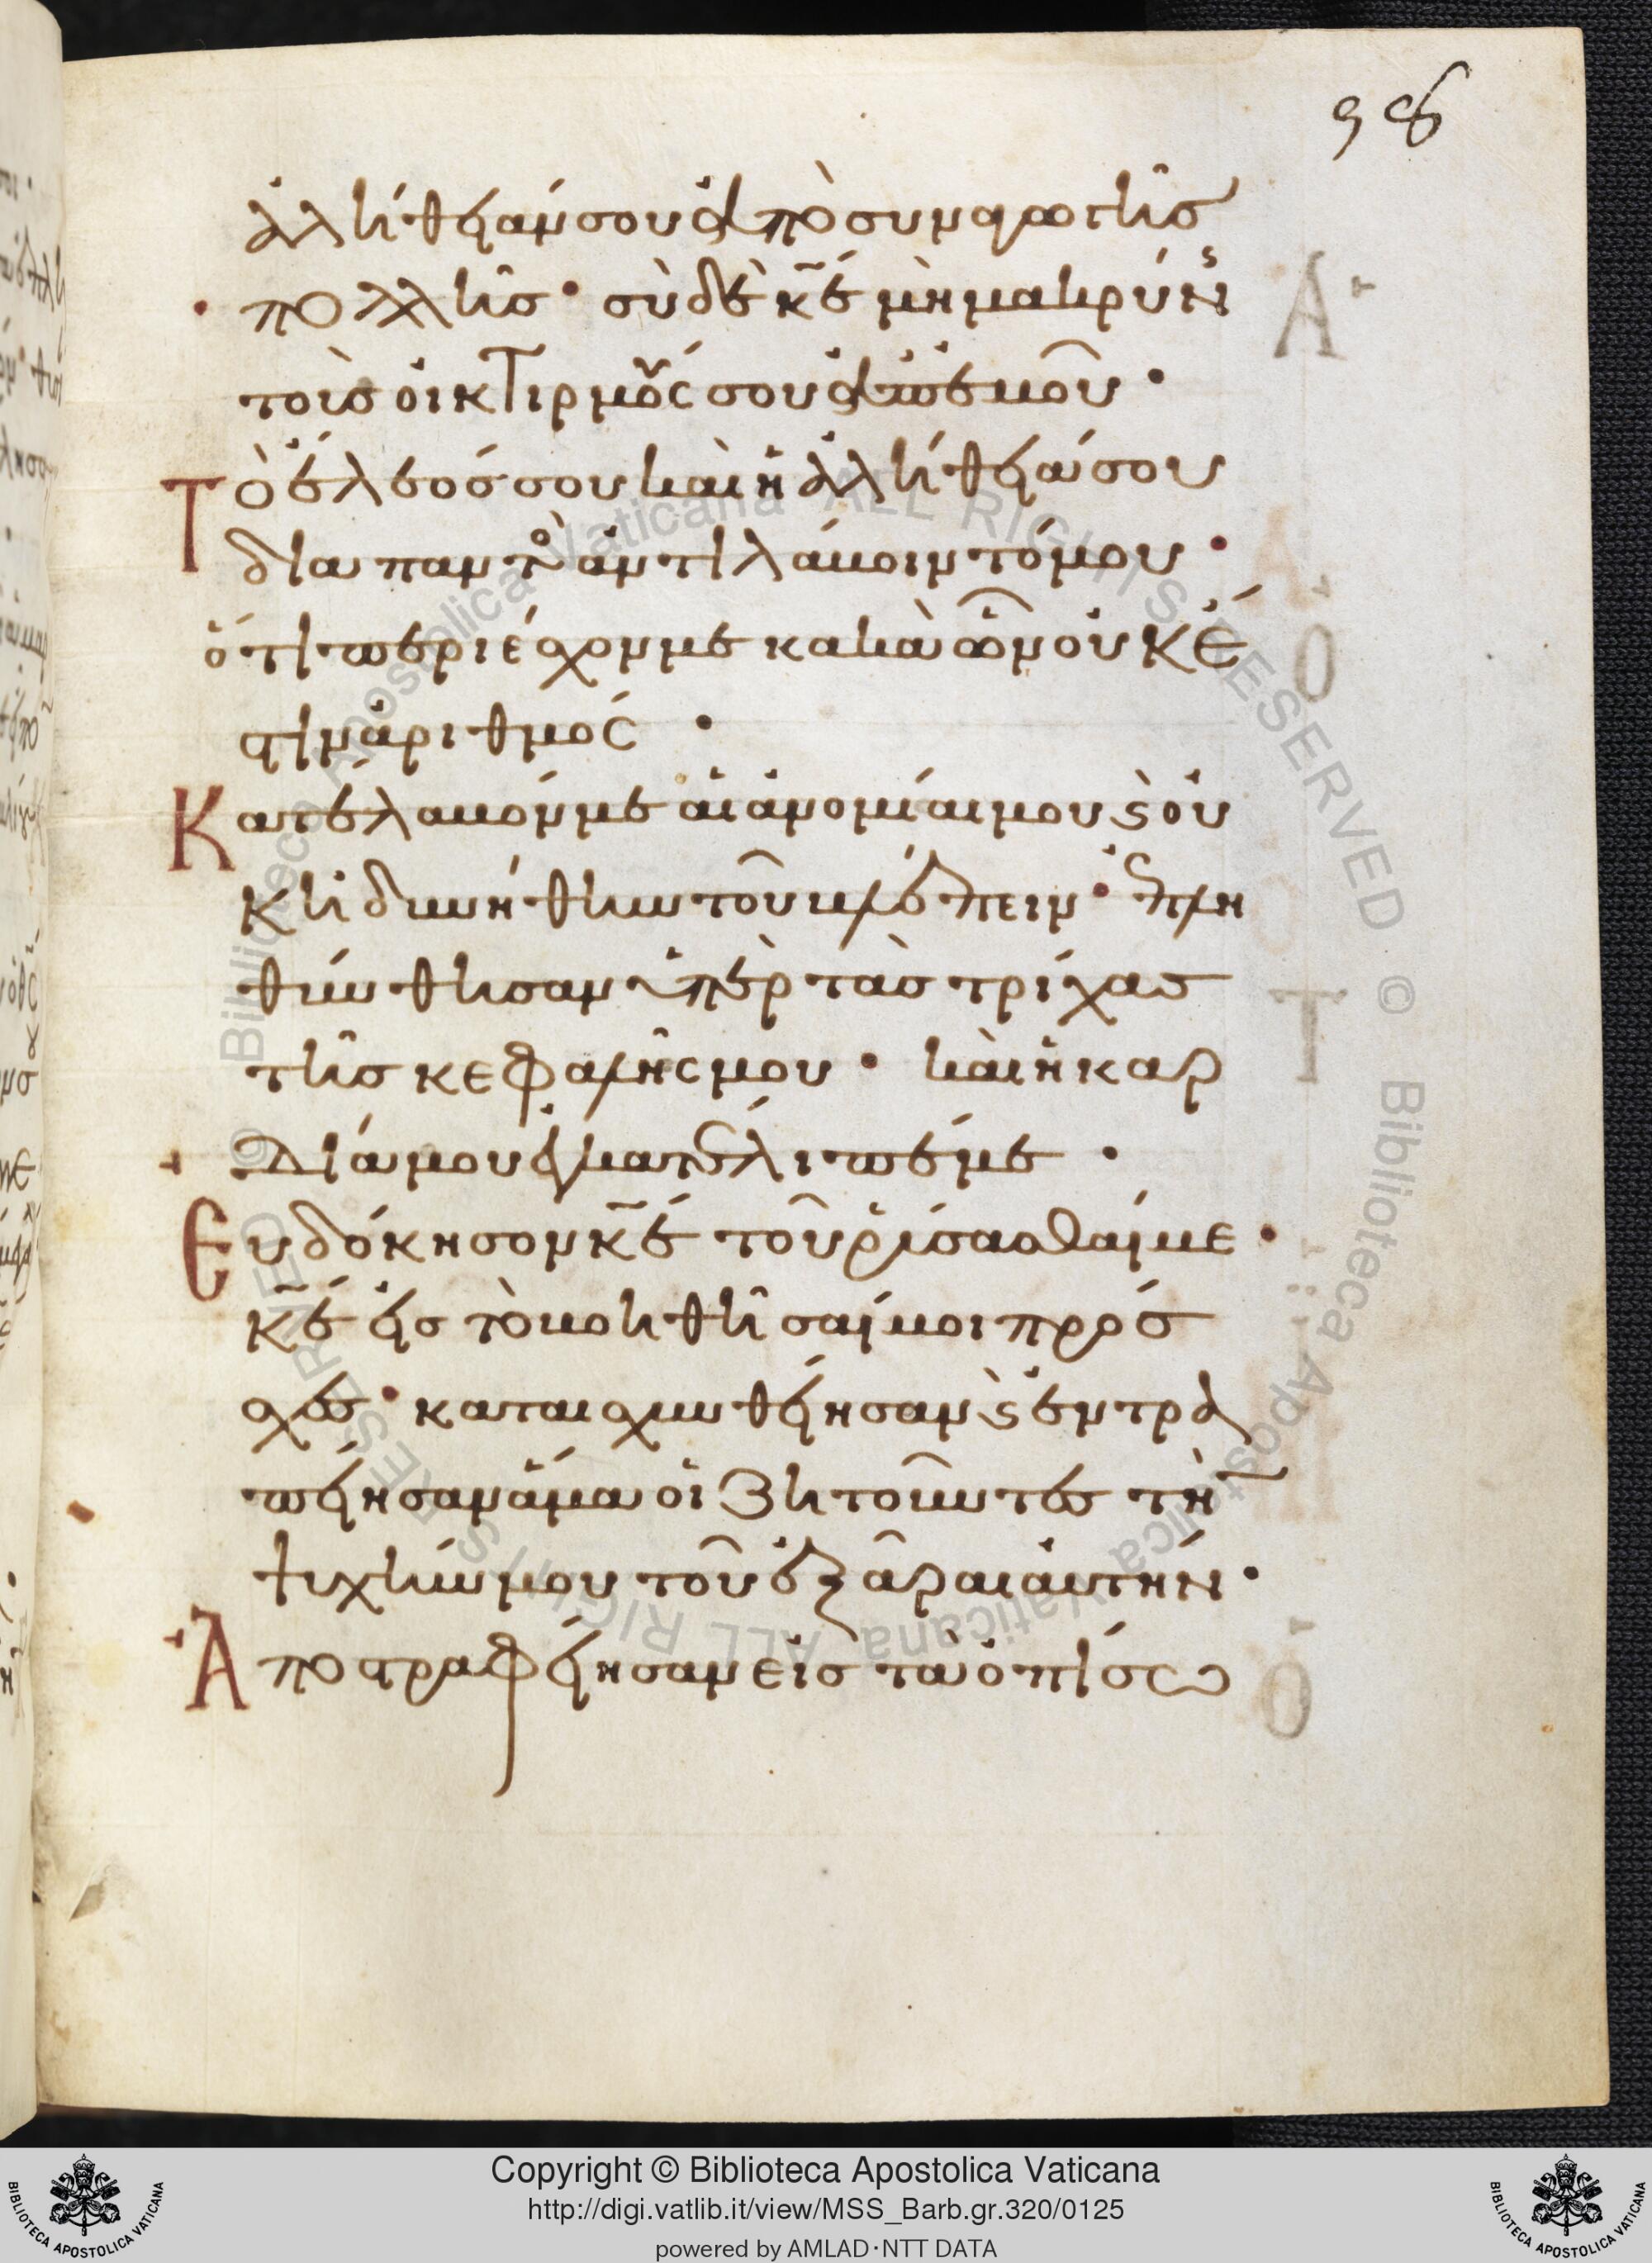 98
ἀλήθειάν σου ἀπὸ συναγωγῆσ
πολλῆσ· σὺ δὲ κ̅ε̅ μὴ μακρύνῃς
τοὺσ οἰκτιρμούς σου ἀπ' ἐμοῦ·
Τὸ ἔλεόσ σου καὶ ἡ ἀλήθειά σου
διαπαντὸς ἀντιλάβοιντό μου·
ὅτι περιέσχον με κακὰ ὧν οὐκ ἔ
στιν ἀριθμός·
Κατέλαβόν με αἱ ἀνομίαι μου ϛ οὐ
κ ἠδυνήθην τοῦ βλέπειν· ἐπλη
θύνθησαν ὑπὲρ τὰσ τρίχασ
τῆσ κεφαλῆς μου· καὶ ἡ καρ
δία μου ἐγκατέλιπέ με·
Ευδόκησον κ̅ε̅ τοῦ ῥύσασθαί με·
κ̅ε̅ εἰσ τὸ βοηθῆσαί μοι πρόσ
χεσ· καταισχυνθείησαν ϛ ἐντρα
πείησαν ἅμα οἱ ζητοῦντεσ τὴν
ψυχήν μου τοῦ ἐξᾶραι αὐτήν·
Ἀποστραφείησαν εἰσ τὰ ὀπίσω
Α
Ο
Τ
Ο
Biblioteca Apostolica Vaticana ALL RIGHTS RESERVED © Biblioteca Apostolica Vaticana ALL RIGHTS RESERVED ©
Copyright © Biblioteca Apostolica Vaticana
http://digi.vatlib.it/view/MSS_Barb.gr.320/0125
powered by AMLAD·NTT DATA
BIBLIOTECA APOSTOLICA VATICANA
BIBLIOTECA APOSTOLICA VATICANA